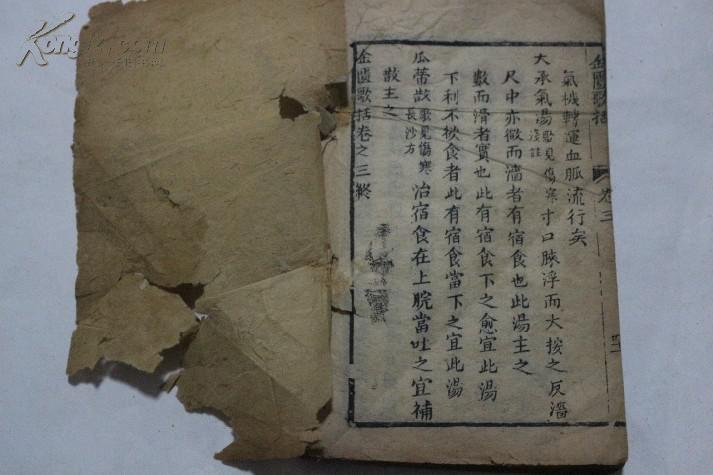 金匱歌括
卷三
氣機轉運血脈流行矣
大承氣湯歌見傷寒淺註寸口脉浮而大按之反濇
尺中亦微而濇者有宿食也此湯主之
數而滑者實也此有宿食下之愈宜此湯
下利不欲食者此有宿食當下之宜此湯
瓜蒂散歌見傷寒長沙方治宿食在上脘當吐之宜補
散主之
金匱歌括卷之三終